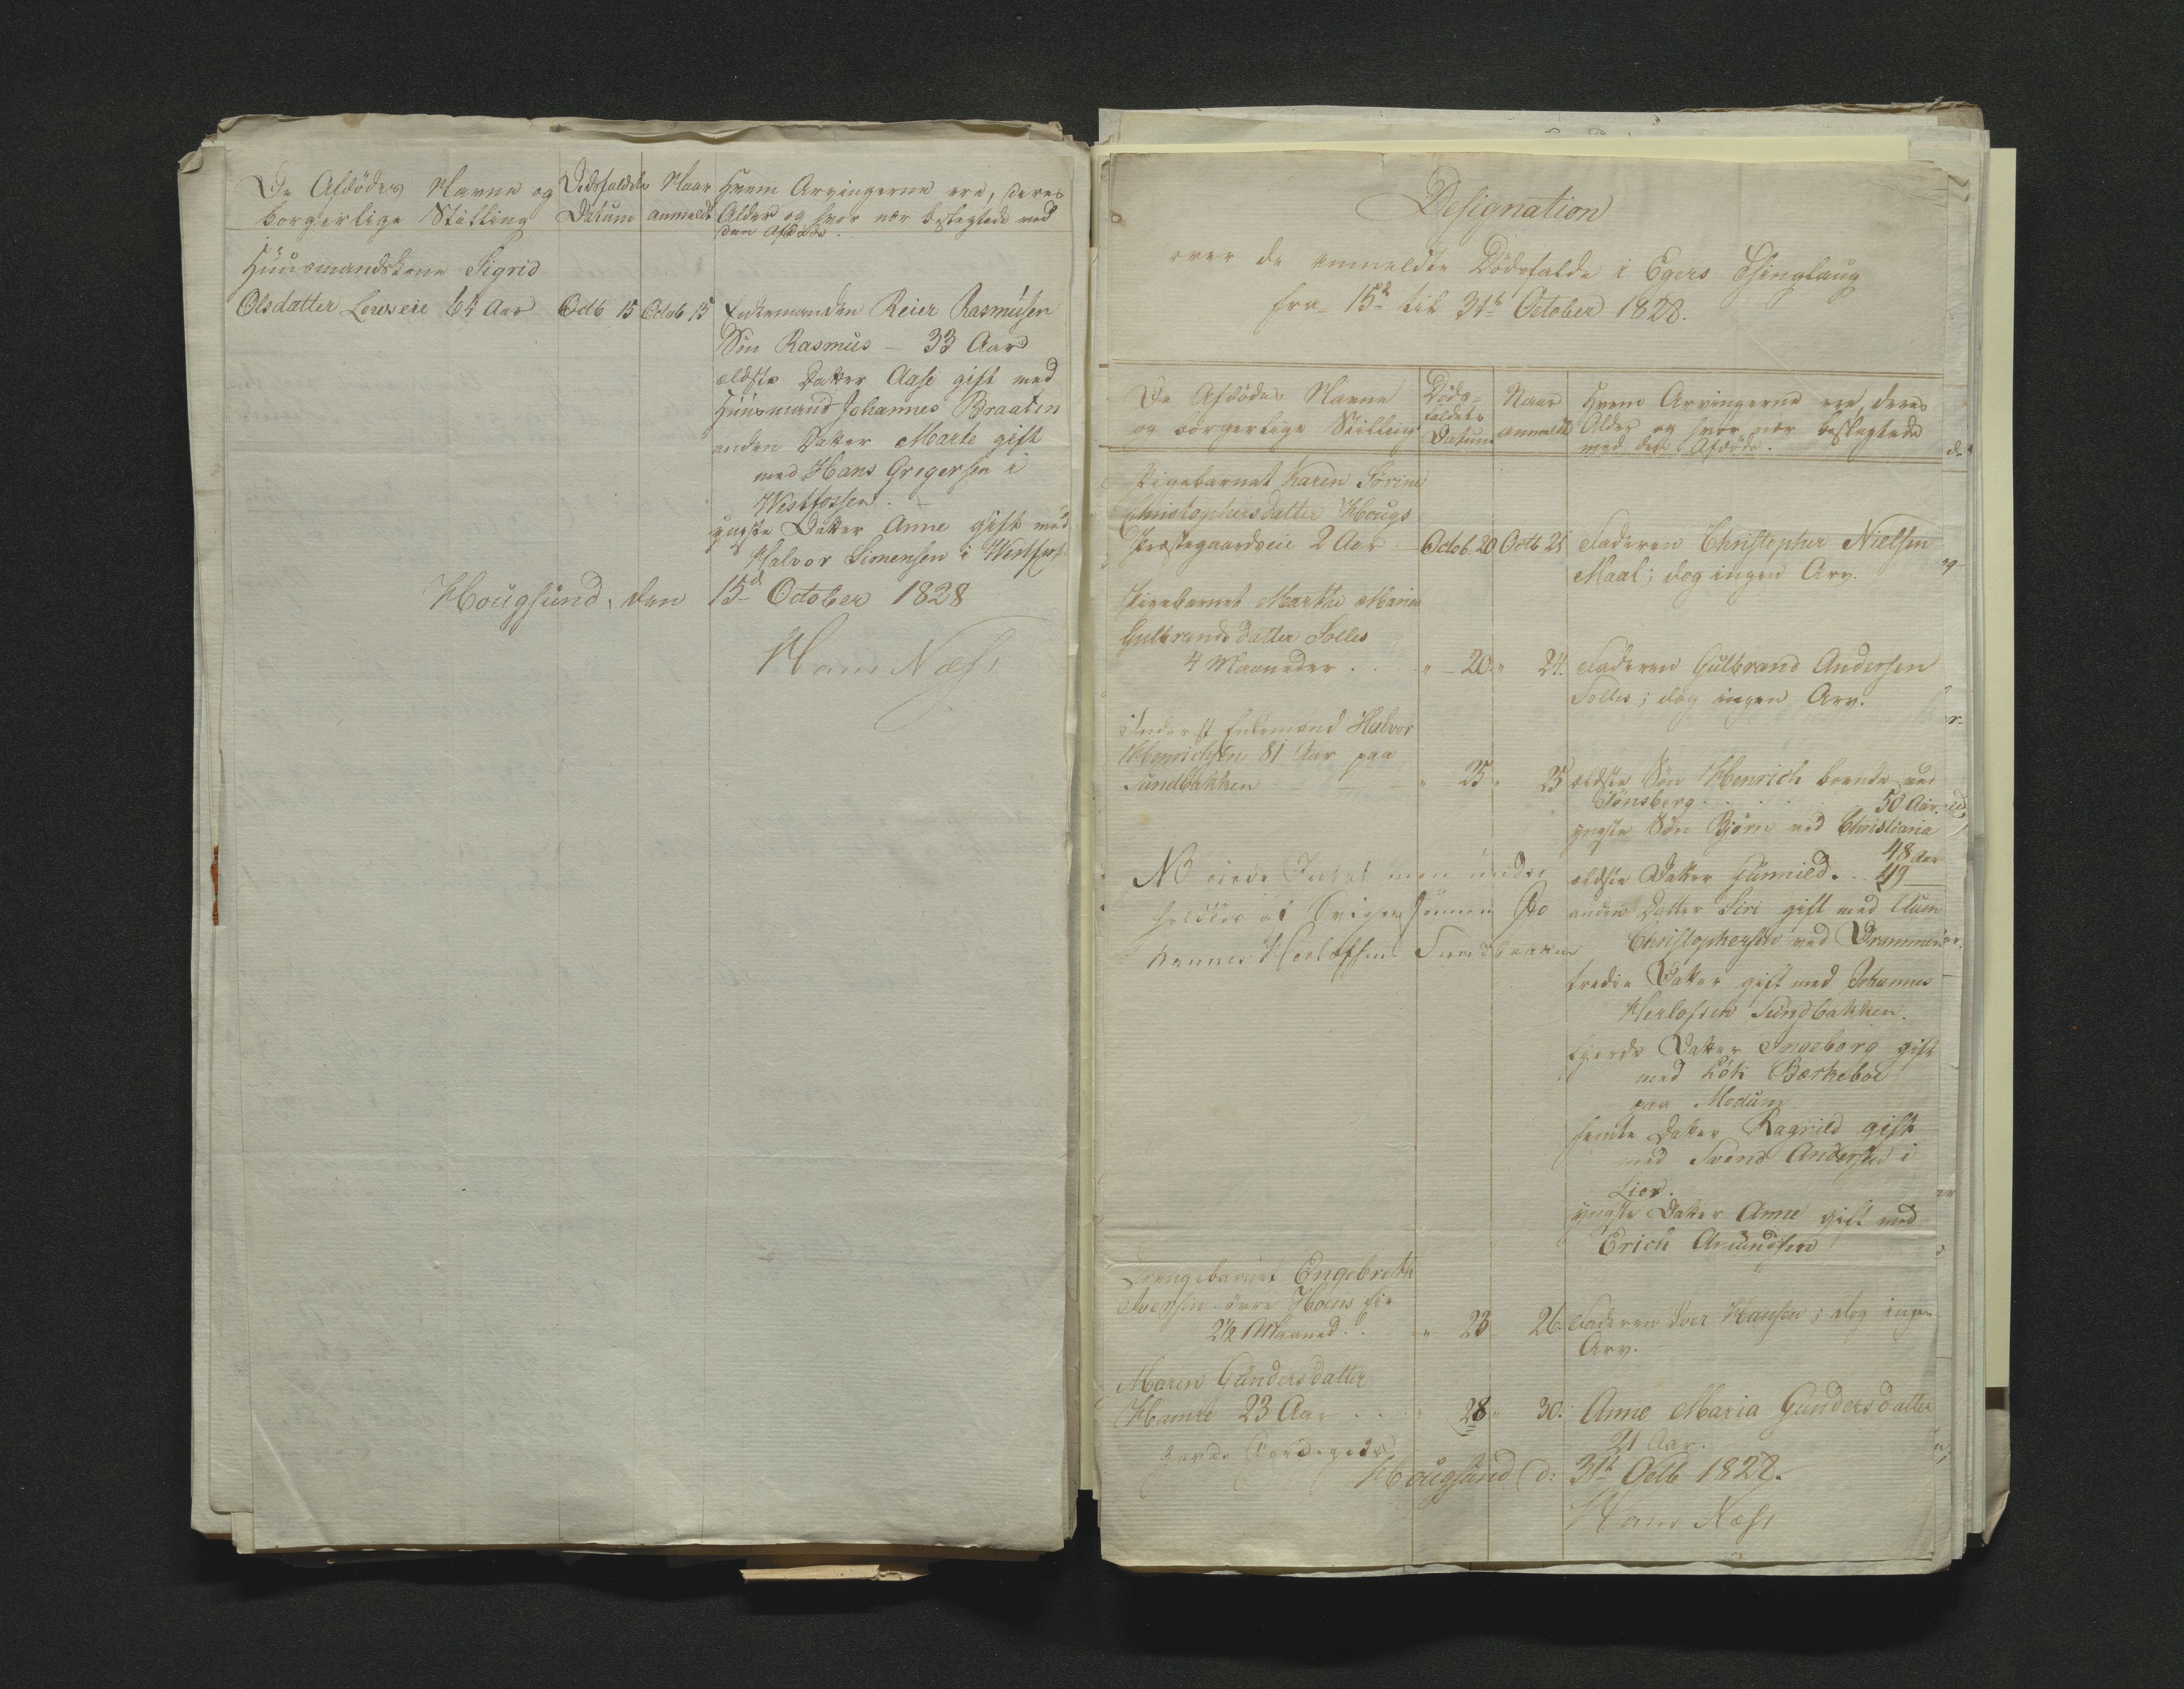 De Afdödes Navne og
borgerlige Stilling
Dödsfaldets
Datum
Naar
anmeldt
Hvem Arvingerne ere, deres
Alder og hvor nær beslegtede med
den Afdöde.
Huusmandskone Sigrid
Olsdatter Lowseie 64 Aar
Octb 15
Octob 15
Enkemanden Reier Rasmusen
Sön Rasmus - 33 Aar
ældste Datter Aase gift med
Huusmand Johannes Braaten
anden Datter Marte gift
med Hans Gregersen i
Westfossen.
yngste Datter Anne gift med
Halvor Simensen i Westfoss.
Hougsund, den 15d October 1828
Hans Næss
Designation
over de anmeldte Dödsfalde i Egers Thinglaug
fra 15d til 31t October 1828.
De Afdödes Navne
og borgerlige Stilling
Döds-
faldets
Datum
Naar
anmeldt
Hvem Arvingerne ere, deres
Alder og hvor nær beslægtede
med den Afdöde.
Pigebarnet Karen Sörine
Christophersdatter Hougs
Præstegaardseie 2 Aar
Octob. 20
Octb 21
Faderen Christopher Nielsen
Maal; dog ingen Arv.
Pigebarnet Marthe Maria
Gulbrandsdatter Solles
4 Maaneder . .
" - 20.
" 24.
Faderen Gulbrand Andersen
Solles; dog ingen Arv.
Inderst Enkemand Halvor
Henrichsen 81 Aar paa
Sundbakken - - -
" 25
" 25
ældste Sön Henrich boende ved
Tönsberg . . . . 50 Aar
yngste Sön Björn ved Christiania
48 Aar
ældste Datter Gunnild . . 49
anden Datter Siri gift med Auen
Christophersen ved Drammen
tredie Datter gift med Johannes
Herlofsen Sundbakken.
fjerde Datter Ingeborg gift
med Bærkeboe
paa Modum
femte Datter Ragnild gift
med Svend Andersen i
Lier.
yngste Datter Anne gift med
Erich Amundsen
NB eiede Intet men under
holdtes af Svigersönnen Jo
hannes Herlofsen Sundbakken
Drengebarnet Engebreth
Iversen övre Hoens eie
2½ Maaned . .
" 23
26.
Faderen Iver Hansen; dog ingen
Arv.
Maren Gundersdatter
Hamre 23 Aar . .
" 28
" 30.
Anne Maria Gundersdatter
21 Aar.
Hougsund d: 31t Octb 1828.
Hans Næss